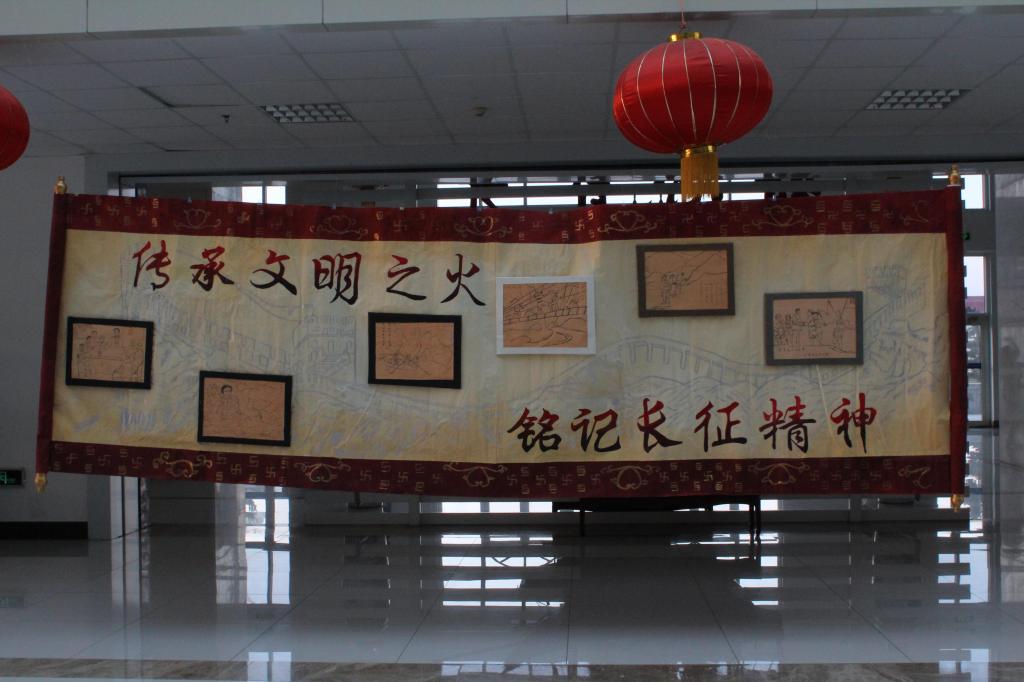 传承文明之火
铭记长征精神